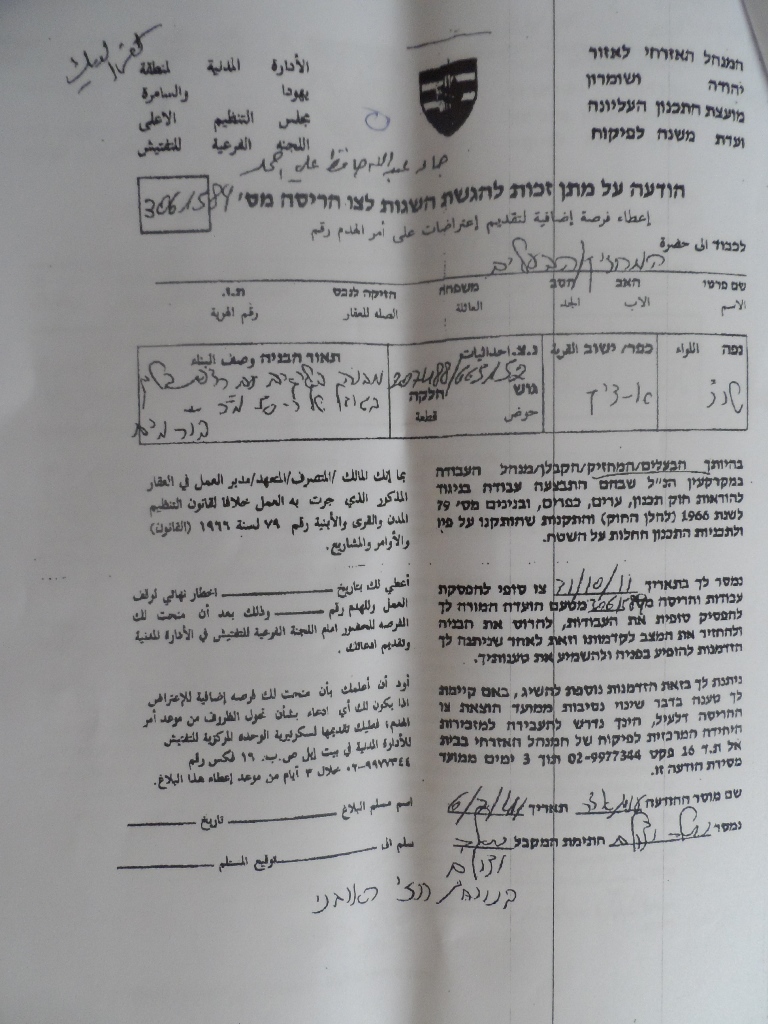 המנהל האזרחי לאזור
יהודה ושומרון
מועצת התכנון העליונה
ועדת משנה לפיקוח
الأدارة المدنية لمنطقة
يهودا والسامرة
مجلس التنظيم الاعلى
اللجنه الفرعية للتفتيش
הודעה על מתן זכות להגשת השגות לצו הריסה מס'
إعطاء فرصة إضافية لتقديم إعتراضات على أمر الهدم رقم
לכבוד الى حضرة המחזיק/הבעלים
שם פרטי האב הסב משפחה הזיקה לנכס ת.ז.
الاسم الاب الجد العائلة الصله للعقار رقم الهوية
נפה اللواء כפר/ ישוב القرية נ.צ. احداثيات תאור הבניה وصف البناء
גוש חלקה
حوض قطعة
בור מים
בהיותך הבעלים/המחזיק/הקבלן/מנהל העבודה
במקרקעין הנ"ל שבהם התבצעה עבודה בניגוד
להוראות חוק תכנון, ערים, כפרים, ובנינים מס' 79
לשנת 1966 (להלן החוק) והתקנות שהותקנו על פיו
ולתכניות התכנון החלות על השטח.
بما إنك المالك /المتصرف/المتعهد/مدير العمل في العقار
المذكور الذي جرت به العمل خلافا لقانون التنظيم
المدن والقرى والأبنية رقم ٧٩ لسنة ١٩٦٦ (القانون)
والأوامر والمشاريع.
נמסר לך בתאריך 31/10/11 צו סופי להפסקת
עבודות והריסה מס' מטעם הועדה המורה לך
להפסיק סופית את העבודות, להרוס את הבניה
ולהחזיר את המצב לקדמותו וזאת לאחר שניתנה לך
הזדמנות להופיע בפניה ולהשמיע את טענותיך.
أعطي لك بتاريخ اخطار نهائي لوقف
العمل وللهدم رقم وذلك بعد أن منحت لك
الفرصه للحضور امام اللجنة الفرعية للتفتيش في الأدارة المدنية
وتقديم ادعائك.
ניתנת לך בזאת הזדמנות נוספת להשיג, באם קיימת
לך טענה בדבר שינוי נסיבות ממועד הוצאת צו
ההריסה דלעיל, הינך נדרש להעבירה למזכירות
היחידה המרכזית לפיקוח של המנהל האזרחי בבית
אל ת.ד 16 פקס 02-9977344 תוך 3 ימים ממועד
מסירת הודעה זו.
أود أن أعلمك بأن منحت لك فرصه إضافية للإعتراض
اذا يكون لك أي ادعاء بشأن تحول الظروف من موعد أمر
الهدم، فعليك تقديمها لسكرتيرية الوحده المركزية للتفتيش
للأدارة المدنية في بيت إيل ص.ب. ١٦ فكس رقم
٠٢-٩٩٧٧٣٤٤ خلال ٣ أيام من موعد إعطاء هذا البلاغ.
שם מוסר ההודעה תאריך
اسم مسلم البلاغ تاريخ
נמסר חתימת המקבל
سلم الى توقيع المستلم